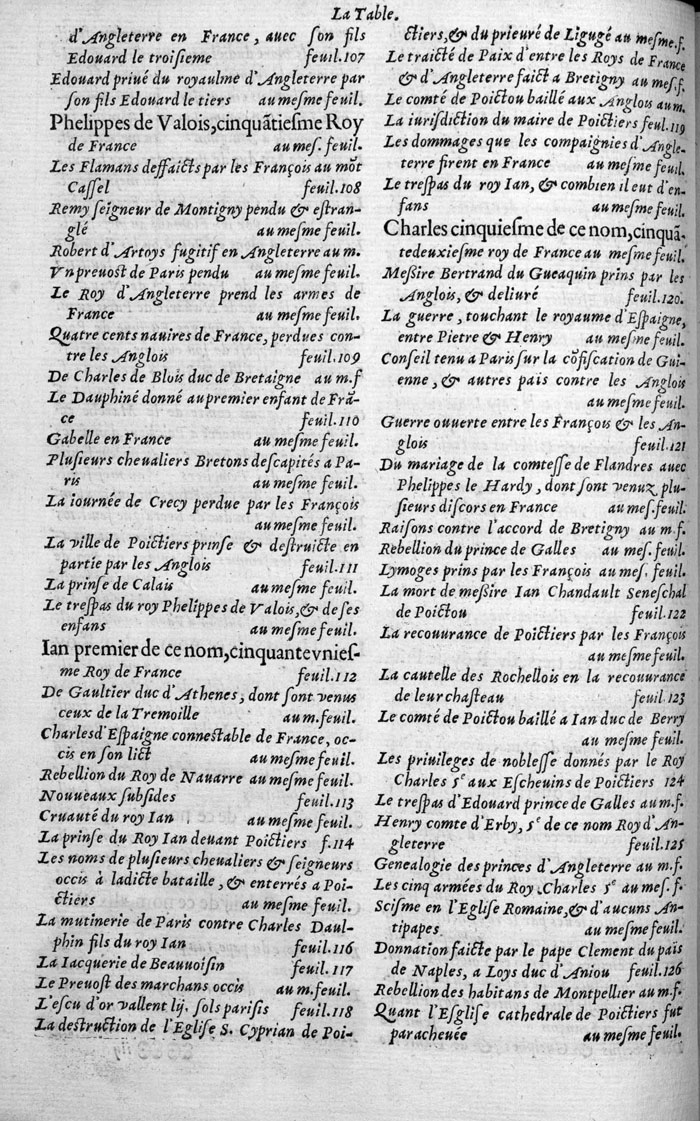 La Table.
d'Angleterre en France, auec ſon fils
Edouard le troiſieme feuil.107
Edouard priué du royaulme d'Angleterre par
ſon fils Edouard le tiers au meſme feuil.
Phelippes de Valois, cinquãtieſme Roy
de France au meſ. feuil.
Les Flamans deffaicts par les François au mõt
Caſſel feuil.108
Remy ſeigneur de Montigny pendu & eſtran-
glé au meſme feuil.
Robert d'Artoys fugitif en Angleterre au m.
Vn preuost de Paris pendu au meſme feuil.
Le Roy d'Angleterre prend les armes de
France au meſme feuil.
Quatre cents nauires de France, perdues con-
tre les Anglois feuil.109
De Charles de Blois duc de Bretaigne au m.f
Le Dauphiné donné au premier enfant de Frã-
ce feuil.110
Gabelle en France au meſme feuil.
Pluſieurs cheualiers Bretons deſcapités a Pa-
ris au meſme feuil.
La iournée de Crecy perdue par les François
au meſme feuil.
La ville de Poictiers prinſe & deſtruicte en
partie par les Anglois feuil.111
La prinſe de Calais au meſme feuil.
Le treſpas du roy Phelippes de Valois, & de ſes
enfans au meſme feuil.
Ian premier de ce nom, cinquantevnieſ-
me Roy de France feuil.112
De Gaultier duc d'Athenes, dont ſont venus
ceux de la Tremoille au m.feuil.
Charles d'Eſpaigne conneſtable de France, oc-
cis en ſon lict au meſme feuil.
Rebellion du Roy de Nauarre au meſme feuil.
Nouueaux ſubſides feuil.113
Cruauté du roy Ian au meſme feuil.
La prinſe du Roy Ian deuant Poictiers f.114
Les noms de pluſieurs cheualiers & ſeigneurs
occis à ladicte bataille, & enterrés a Poi-
ctiers au meſme feuil.
La mutinerie de Paris contre Charles Daul-
phin fils du roy Ian feuil.116
La Iacquerie de Beauuoiſin feuil.117
Le Preuost des marchans occis au m.feuil.
L'eſcu d'or vallent lij. ſols pariſis feuil.118
La deſtruction de l'Egliſe S. Cyprian de Poi-
ctiers, & du prieuré de Ligugé au meſme.f.
Le traicté de Paix d'entre les Roys de France
& d'Angleterre faict a Bretigny au meſ.f.
Le comté de Poictou baillé aux Anglois au m.
La iuriſdiction du maire de Poictiers feul.119
Les dommages que les compaignies d'Angle-
terre firent en France au meſme feuil.
Le treſpas du roy Ian, & combien il eut d'en-
fans au meſme feuil.
Charles cinquieſme de ce nom, cinquã-
tedeuxieſme roy de France au meſme feuil.
Meſsire Bertrand du Gueaquin prins par les
Anglois, & deliuré feuil.120.
La guerre, touchant le royaume d'Eſpaigne,
entre Pietre & Henry au meſme feuil.
Conſeil tenu a Paris ſur la cõfiſcation de Gui-
enne, & autres païs contre les Anglois
au meſme feuil.
Guerre ouuerte entre les François & les An-
glois feuil.121
Du mariage de la comteſſe de Flandres auec
Phelippes le Hardy, dont ſont venuz plu-
ſieurs diſcors en France au meſ.feuil.
Raiſons contre l'accord de Bretigny au m.f.
Rebellion du prince de Galles au meſ.feuil.
Lymoges prins par les François au meſ. feuil.
La mort de meſsire Ian Chandault Seneſchal
de Poictou feuil.122
La recouurance de Poictiers par les François
au meſme feuil.
La cautelle des Rochellois en la recouurance
de leur chaſteau feuil.123
Le comté de Poictou baillé a Ian duc de Berry
au meſme feuil.
Les priuileges de nobleſſe donnés par le Roy
Charles 5ᵉ aux Eſcheuins de Poictiers 124
Le treſpas d'Edouard prince de Galles au m.f.
Henry comte d'Erby, 5ᵉ de ce nom Roy d'An-
gleterre feuil.125
Genealogie des princes d'Angleterre au m.f.
Les cinq armées du Roy Charles 5ᵉ au meſ.f.
Sciſme en l'Egliſe Romaine, & d'aucuns An-
tipapes au meſme feuil.
Donnation faicte par le pape Clement du païs
de Naples, a Loys duc d'Aniou feuil.126
Rebellion des habitans de Montpellier au m.f.
Quant l'Eſgliſe cathedrale de Poictiers fut
paracheuée au meſme feuil.